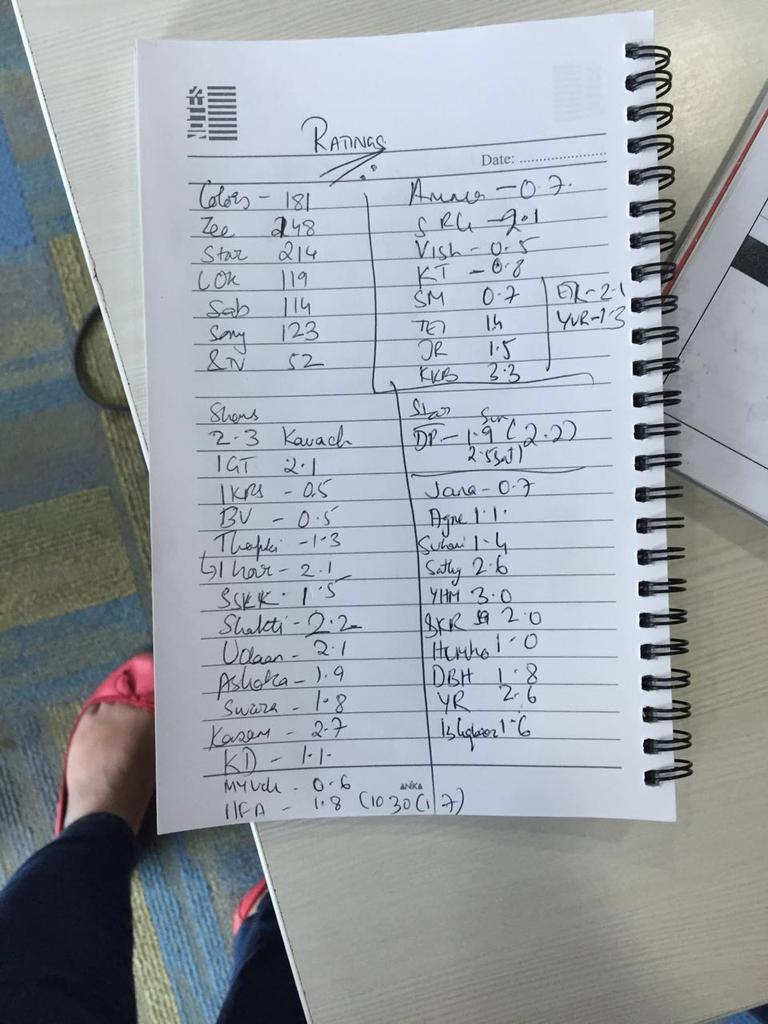 NOTES
RATINGS
Date: ....................
Colors - 181
Zee 248
Star 214
LOK 119
Sab 114
Sony 123
&TV 52
- 0.7.
SRG - 2.1
Vish - 0.5
KT - 0.8
SM 0.7
TEI 1.4
JR 1.5
KKB 3.3
ETR - 2.1
YVR - 1.3
Shows
2.3 Kavach
IGT 2.1
IKRS - 0.5
BV - 0.5
Thapki - 1.3
1 hour - 2.1
SSKK - 1.5
Shakti - 2.2
Udaan - 2.1
Ashoka - 1.9
Swara - 1.8
Kasam - 2.7
KD - 1.1.
MYUCh - 0.6
IIFA - 1.8 (10 30 (1.7)
Star
Sun
DP - 1.9 (2.2)
2.5 Sat)
Jana - 0.7
Agne 1.1.
Suhani 1.4
Sathy 2.6
YHM 3.0
SKR 2.0
Humko 1.0
DBH 1.8
YR 2.6
Ishqbaaz 1.6
ANIKA